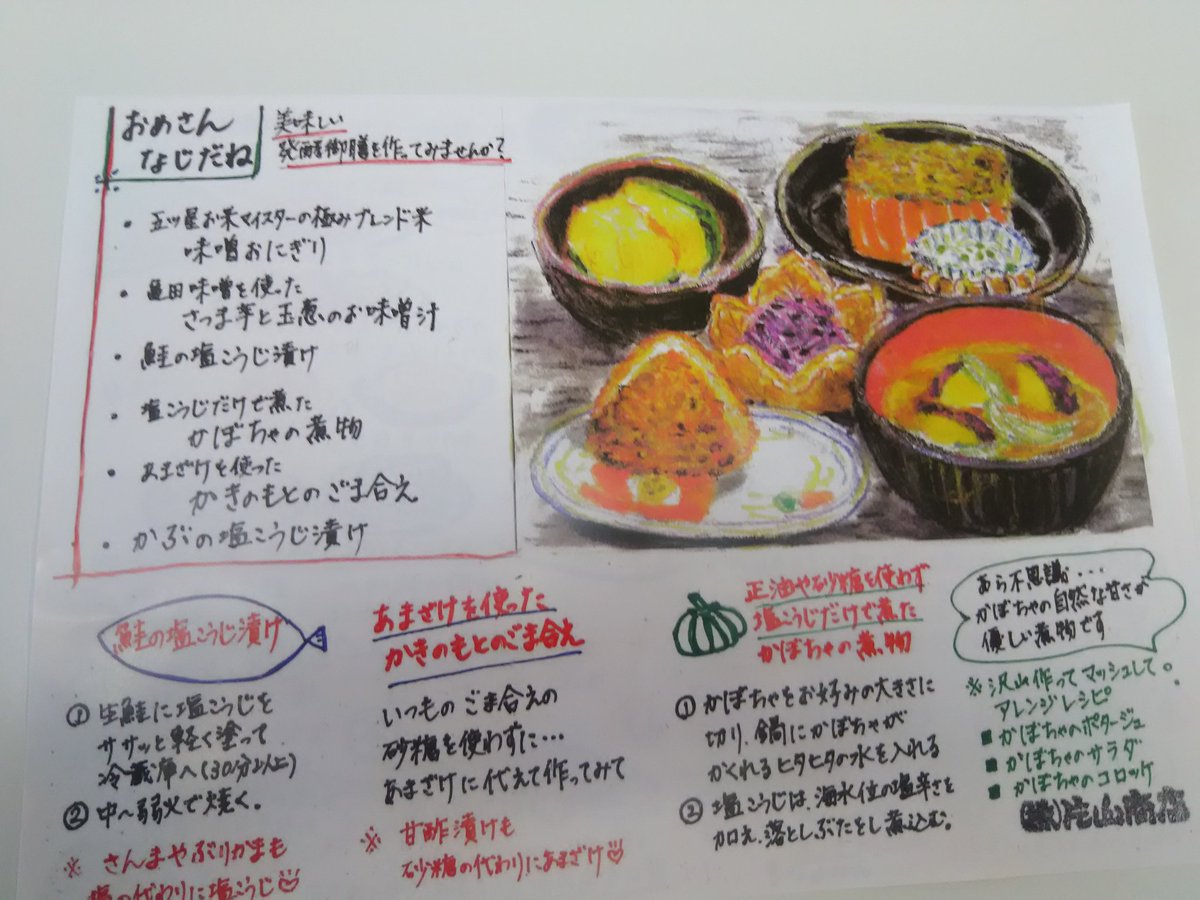 おめさん
なじだね
美味しい
発酵御膳を作ってみませんか?
・五ッ星お米マイスターの極みブレンド米
味噌おにぎり
・亀田味噌を使った
さつま芋と玉葱のお味噌汁
・鮭の塩こうじ漬け
・塩こうじだけで煮た
かぼちゃの煮物
・あまざけを使った
かきのもとのごま合え
・かぶの塩こうじ漬け
鮭の塩こうじ漬け
① 生鮭に塩こうじを
ササッと軽く塗って
冷蔵庫へ(30分以上)
② 中〜弱火で焼く。
※ さんまやぶりかまも
塩の代わりに塩こうじ
あまざけを使った
かきのもとのごま合え
いつものごま合えの
砂糖を使わずに…
あまざけに代えて作ってみて
※ 甘酢漬けも
砂糖の代わりにあまざけ
正油や砂糖を使わず
塩こうじだけで煮た
かぼちゃの煮物
① かぼちゃをお好みの大きさに
切り、鍋にかぼちゃが
かくれるヒタヒタの水を入れる
② 塩こうじは、海水位の塩辛さを
加え、落としぶたをし煮込む。
あら不思議・・・
かぼちゃの自然な甘さが
優しい煮物です
※ 沢山作ってマッシュして。
アレンジレシピ
■ かぼちゃのポタージュ
■ かぼちゃのサラダ
■ かぼちゃのコロッケ
(株)片山商店